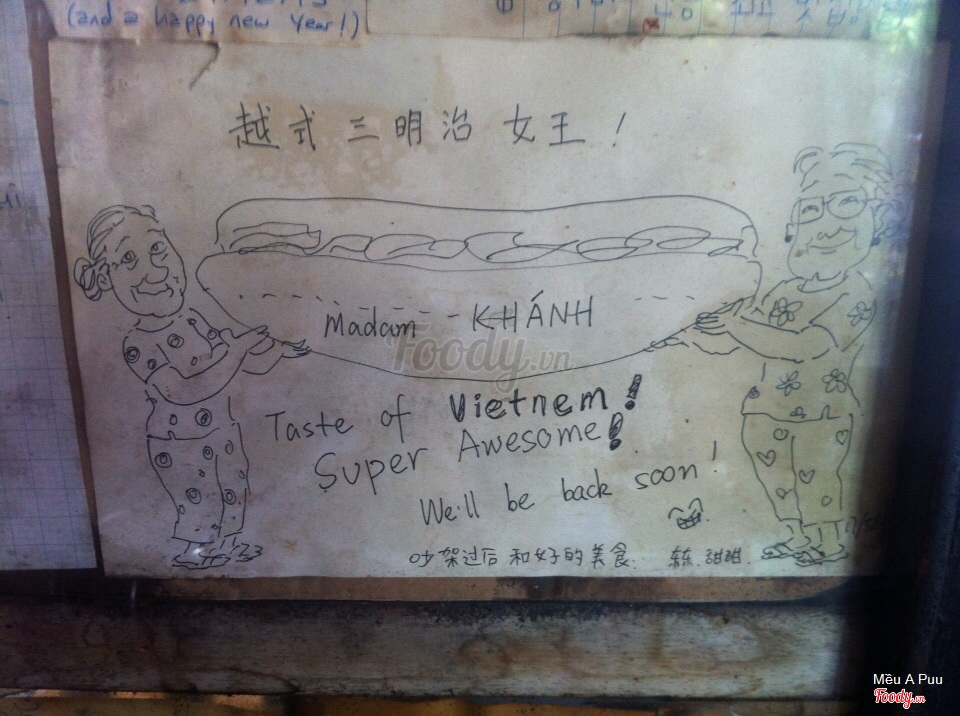 (and a happy new Year!)
越式三明治女王!
Madam KHÁNH
Foody.vn
Taste of Vietnem!
Super Awesome!
We'll be back soon!
吵架过后和好的美食.
甜甜.
Mều A Puu
Foody.vn